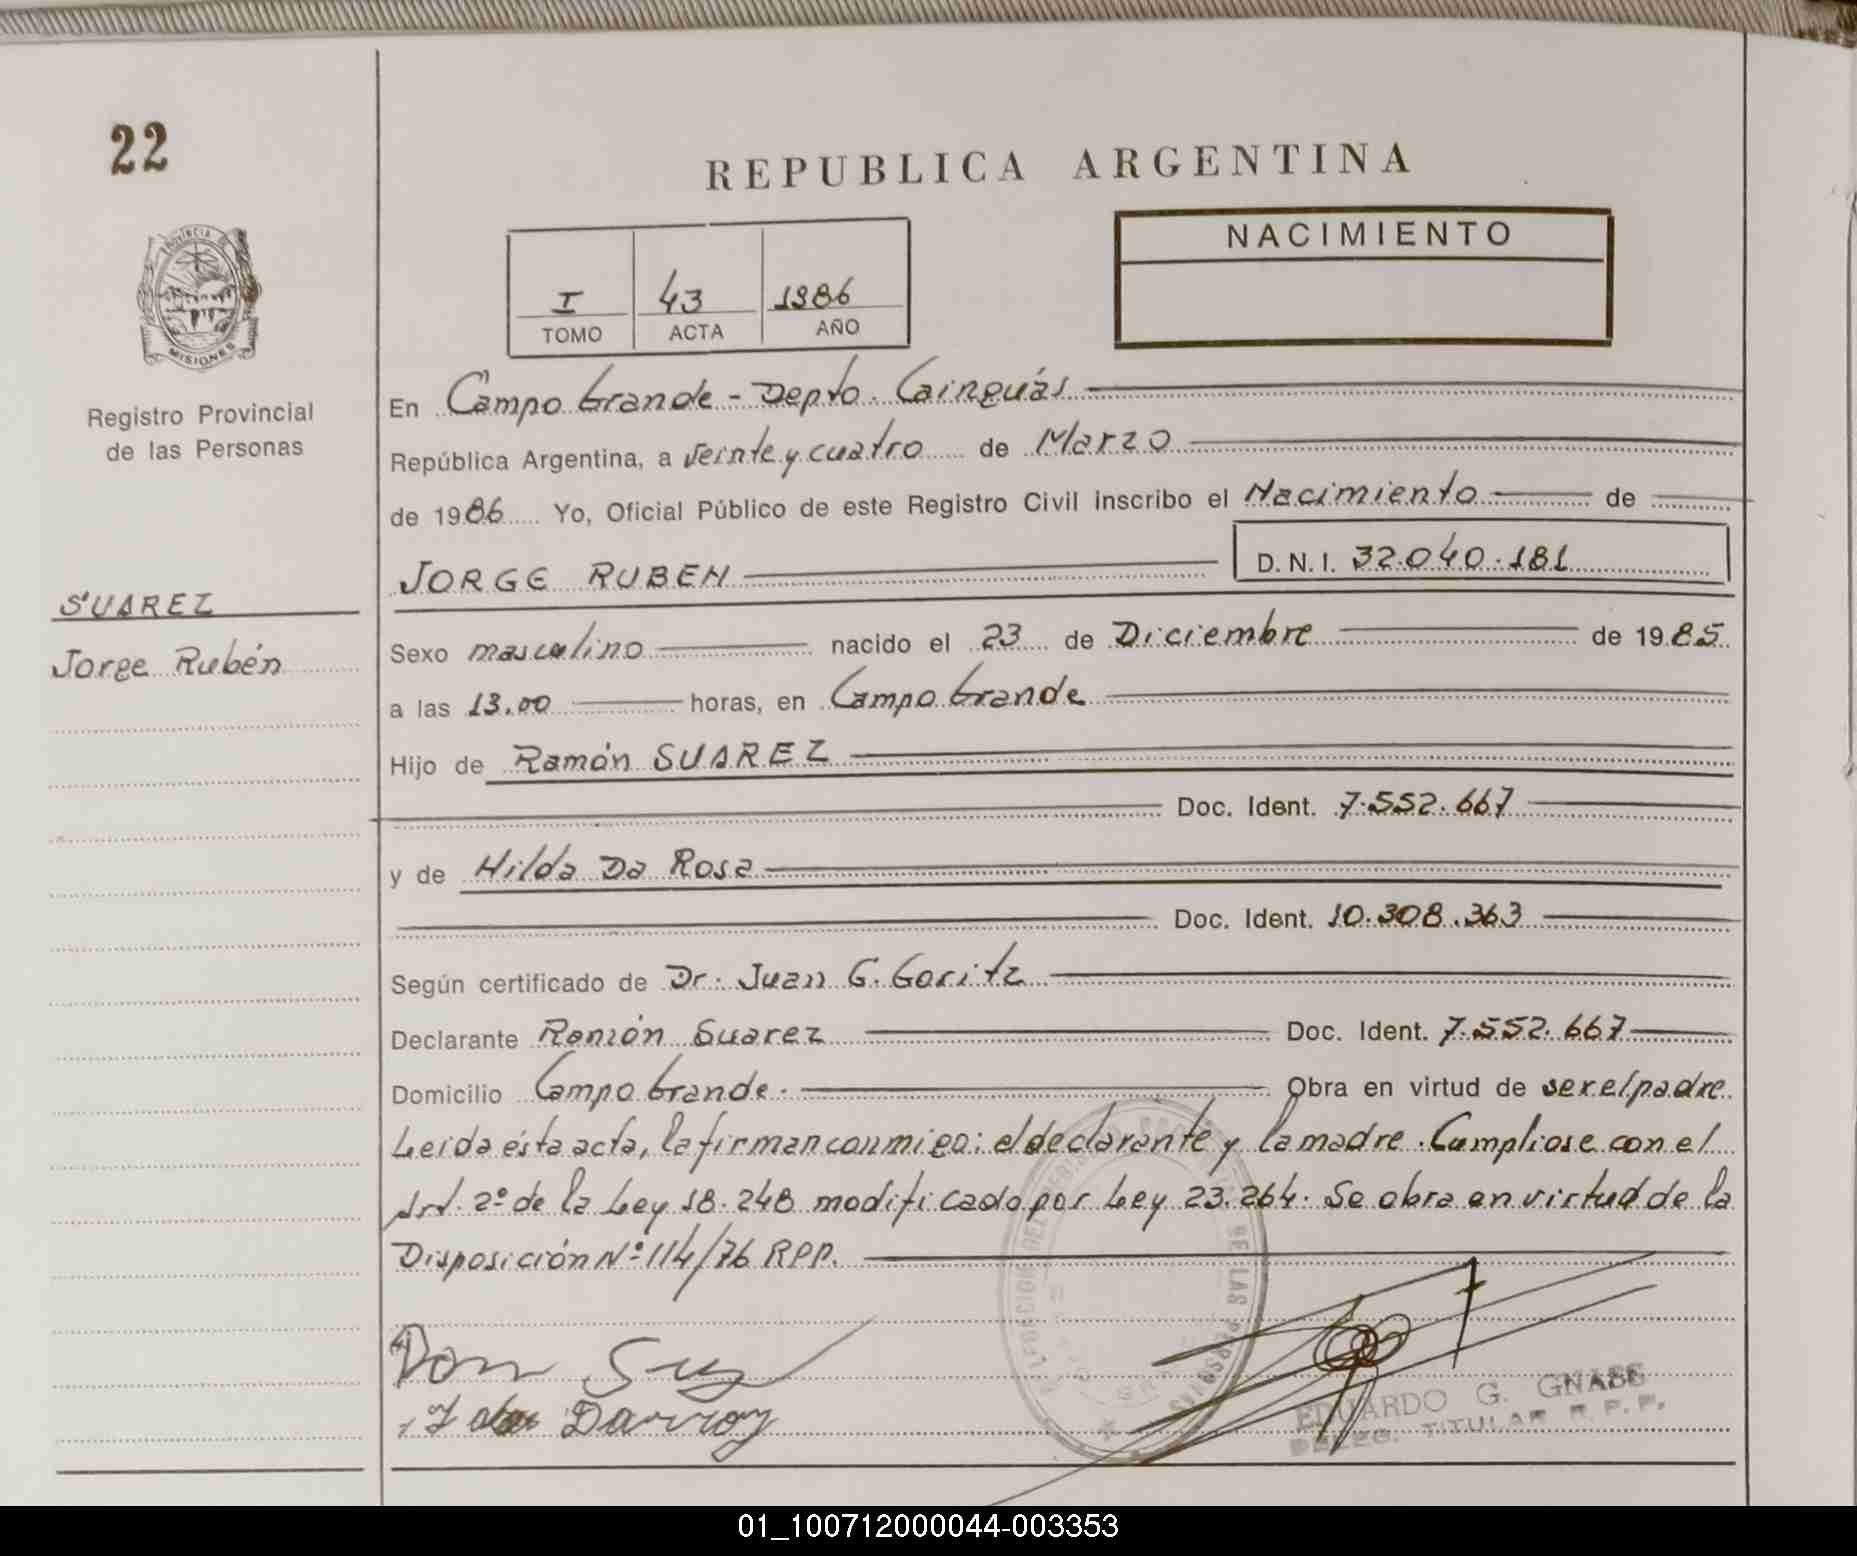 22
REPUBLICA ARGENTINA
PROVINCIA DE
MISIONES
Registro Provincial
de las Personas
I 43 1986
TOMO ACTA AÑO
NACIMIENTO
En Campo Grande - Depto. Cainguás
República Argentina, a veinte y cuatro de Marzo
de 1986 Yo, Oficial Público de este Registro Civil inscribo el Nacimiento de
JORGE RUBEN D.N.I. 32.040.181
SUAREZ
Jorge Rubén
Sexo masculino nacido el 23 de Diciembre de 1985
a las 13.00 horas, en Campo Grande
Hijo de Ramón SUAREZ
Doc. Ident. 7.552.667
y de Hilda Da Rosa
Doc. Ident. 10.308.363
Según certificado de Dr. Juan G. Goritz
Declarante Ramón Suarez Doc. Ident. 7.552.667
Domicilio Campo Grande. Obra en virtud de ser el padre.
Leída ésta acta, la firman conmigo: el declarante y la madre. Cumpliose con el
Art. 2º de la Ley 18.248 modificado por Ley 23.264. Se obra en virtud de la
Disposición Nº 114/76 RPP.
EDUARDO G. GNASS
DELEG. TITULAR R.P.P.
01_100712000044-003353